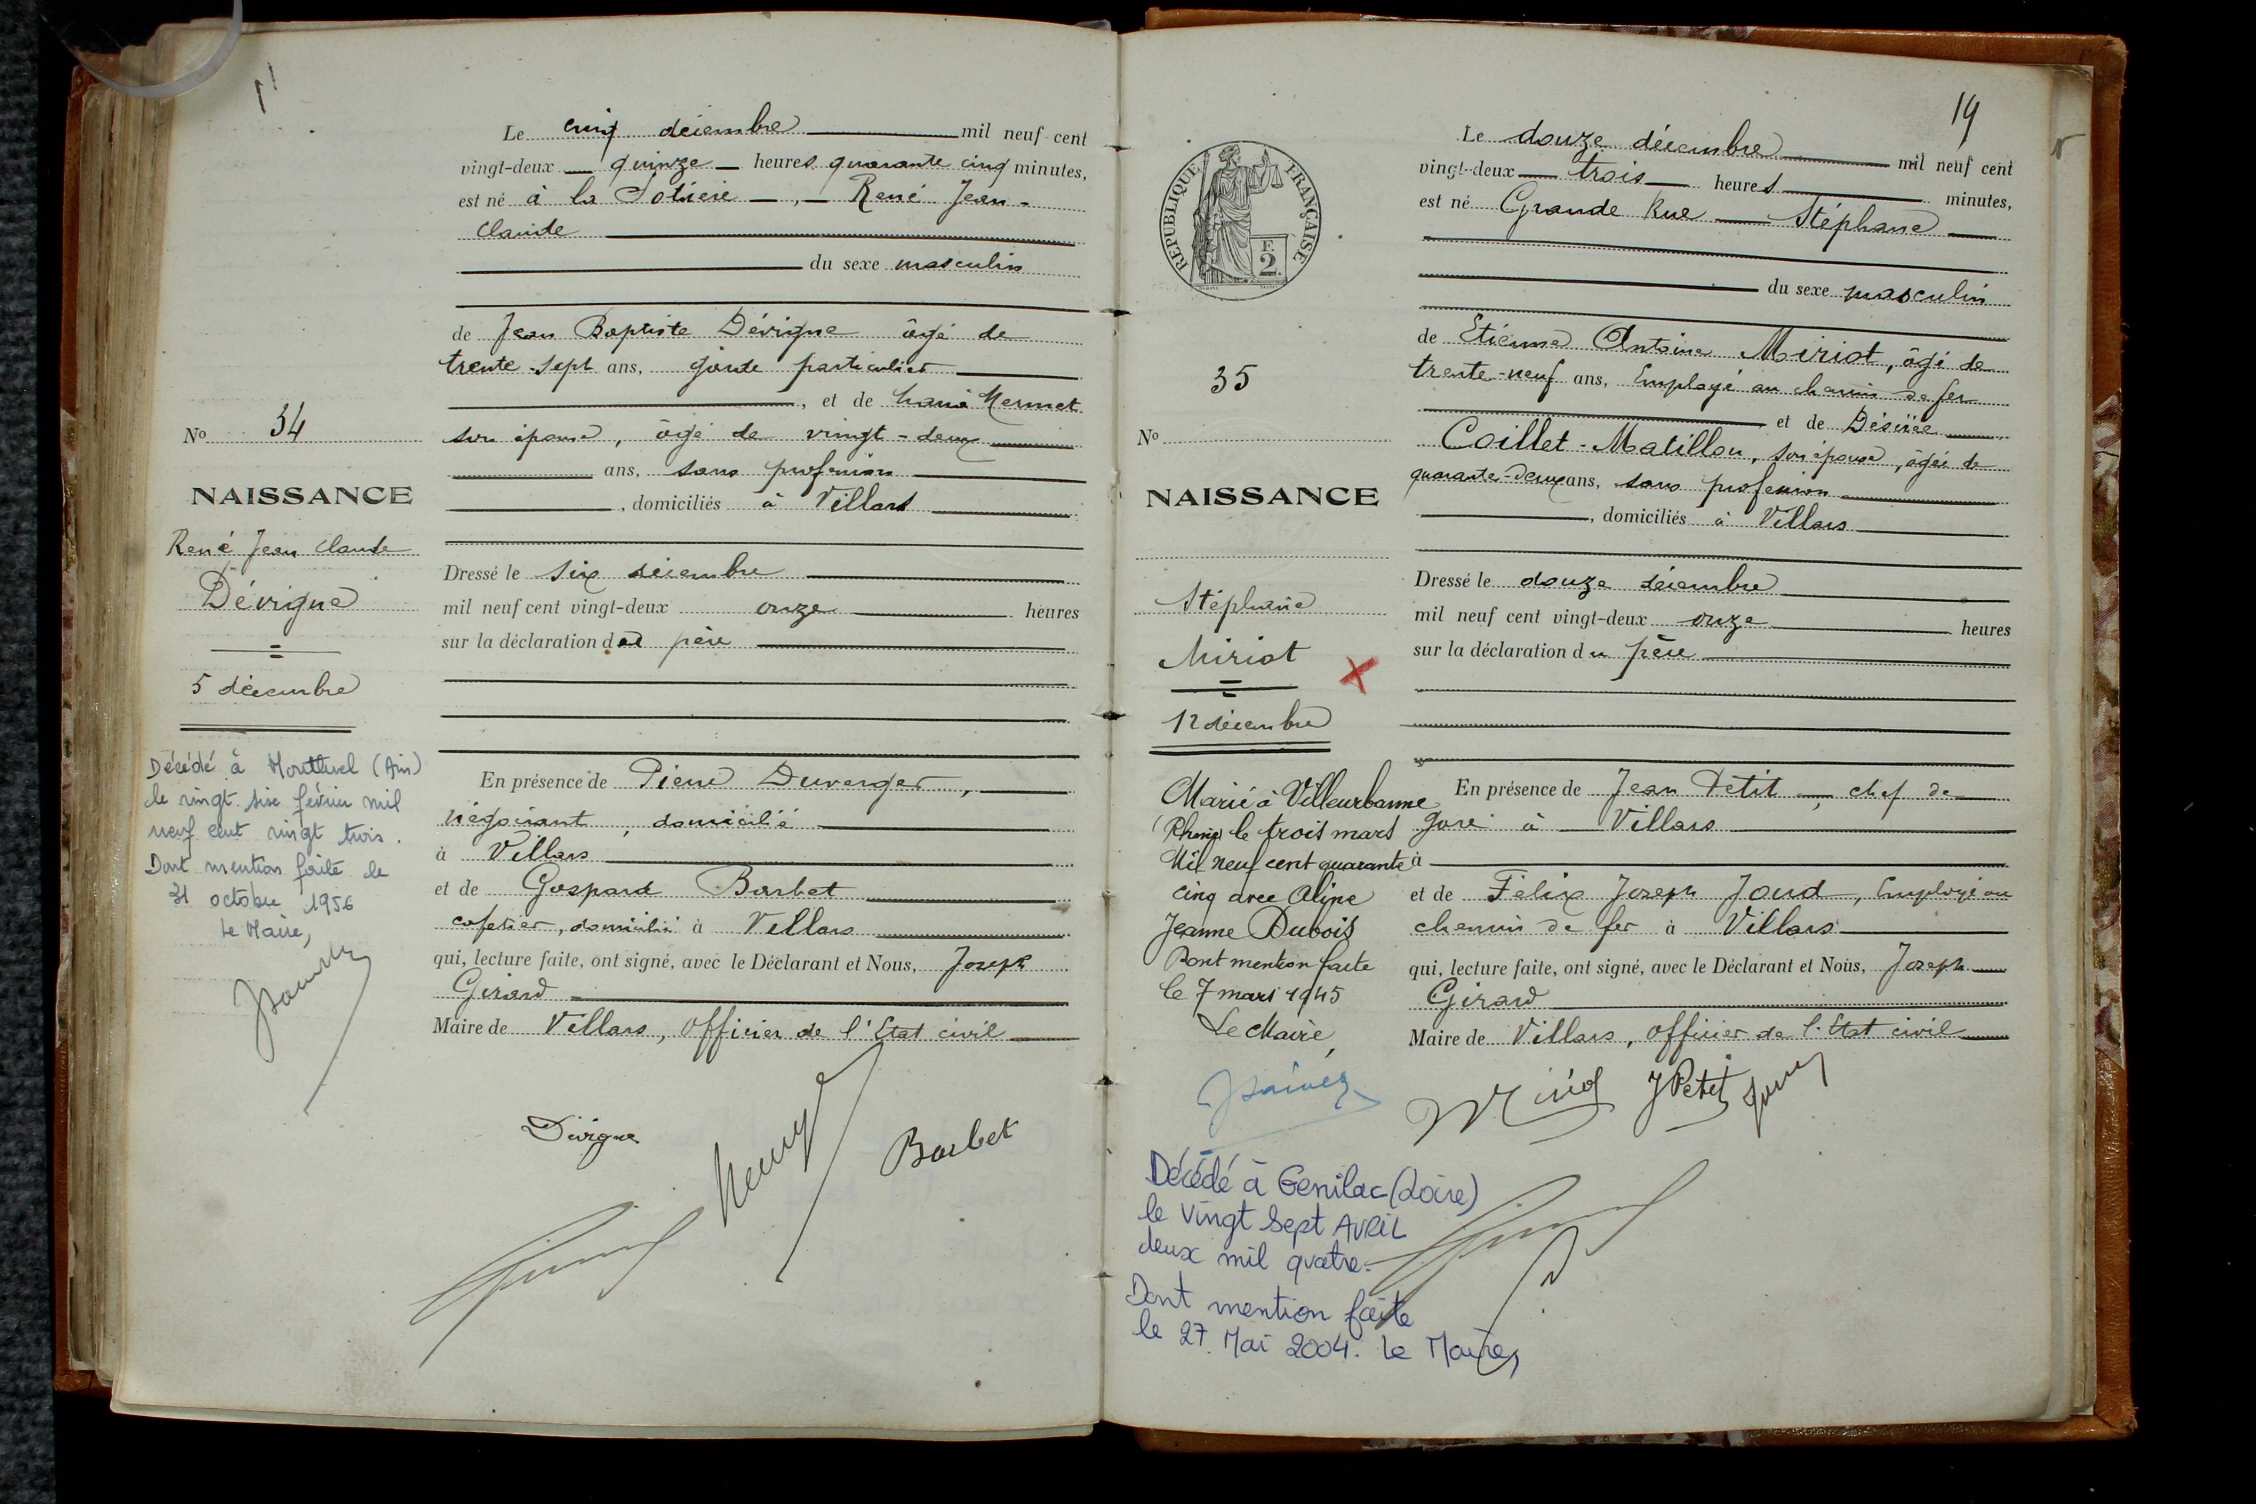 Le cinq décembre mil neuf cent
vingt-deux quinze heures quarante cinq minutes,
est né à la, René Jean-
Claude
du sexe masculin
de Jean Baptiste Dévigne âgé de
trente-sept ans, garde particulier
, et de Mermet
son épouse, âgé de vingt-deux
ans, sans profession
, domiciliés à Villars
Dressé le six décembre
mil neuf cent vingt-deux onze heures
sur la déclaration du père
En présence de Pierre Duverger,
négociant, domicilié
à Villars
et de Gaspard Barbet
cafetier, domicilié à Villars
qui, lecture faite, ont signé, avec le Déclarant et Nous, Joseph
Girard
Maire de Villars, officier de l'Etat civil
Dévigne
Barbet
No 34
NAISSANCE
René Jean Claude
Dévigne
5 décembre
Décédé à Montluel (Ain)
le vingt six février mil
neuf cent vingt trois.
Dont mention faite le
31 octobre 1956
Le Maire,
19
RÉPUBLIQUE FRANÇAISE
F.
2.
35
No
NAISSANCE
Stéphane
Miriot
12 décembre
Marié à Villeurbanne
(Rhône) le trois mars
Mil neuf cent quarante
cinq avec Aline
Jeanne Dubois
Dont mention faite
le 7 mars 1945
Le Maire,
Décédé à Genilac (Loire)
le vingt Sept AVRIL
deux mil quatre.
Dont mention faite
le 27 Mai 2004. Le Maire,
Le douze décembre mil neuf cent
vingt-deux trois heures minutes,
est né Grande Rue Stéphane
du sexe masculin
de Etienne Antoine Miriot, âgé de
trente-neuf ans, Employé au chemin de fer
et de Désirée
Coillet-Matillon, son épouse, âgée de
quarante-deux ans, sans profession
, domiciliés à Villars
Dressé le douze décembre
mil neuf cent vingt-deux onze heures
sur la déclaration du père
En présence de Jean Petit, chef de
gare à Villars
à
et de Félix Joseph Joud, Employé au
chemin de fer à Villars
qui, lecture faite, ont signé, avec le Déclarant et Nous, Joseph
Girard
Maire de Villars, officier de l'Etat civil
J Petit